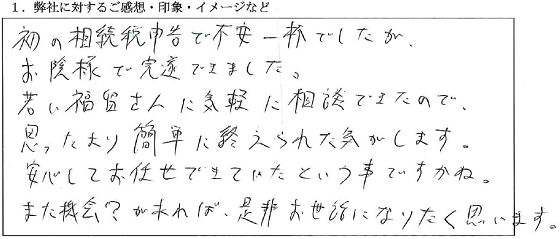 1．弊社に対するご感想・印象・イメージなど
初の相続税申告で不安一杯でしたが、
お陰様で完遂できました。
若い福留さんに気軽に相談できたので、
思ったより簡単に終えられた気がします。
安心してお任せできていたという事ですかね。
また機会？があれば、是非お世話になりたく思います。